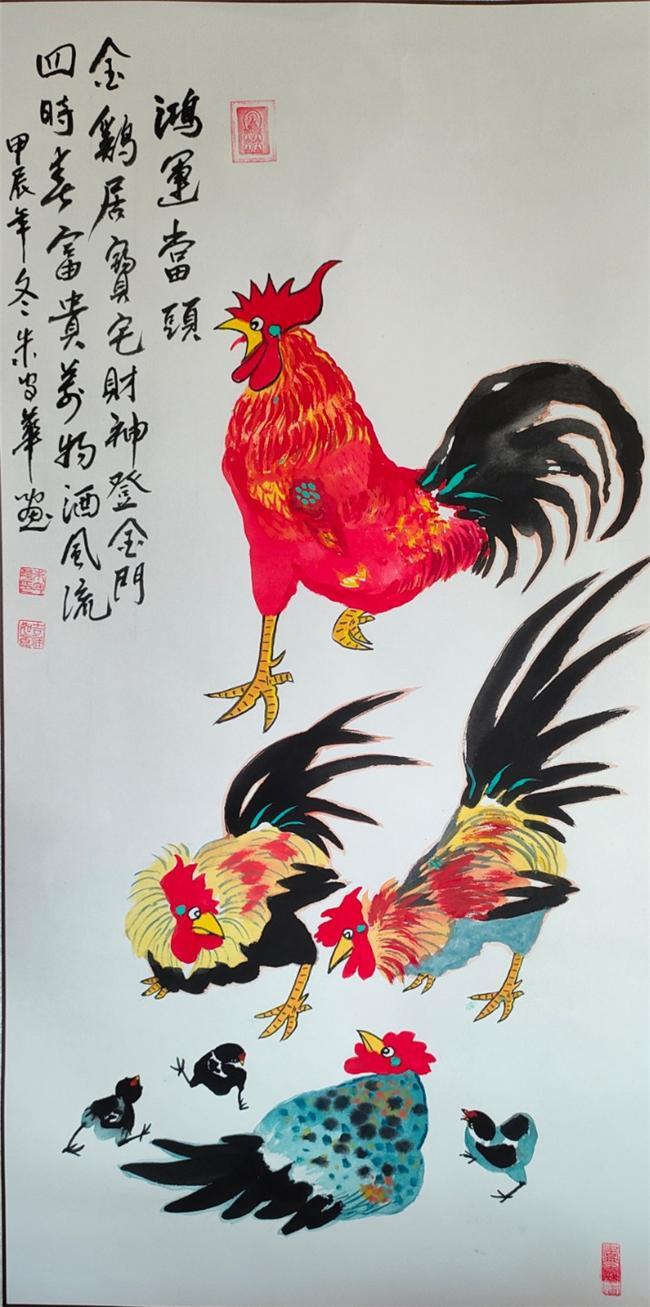 鴻運當頭
金鷄居寶宅財神登金門
四時春富貴萬物酒風流
甲辰年冬朱守華画